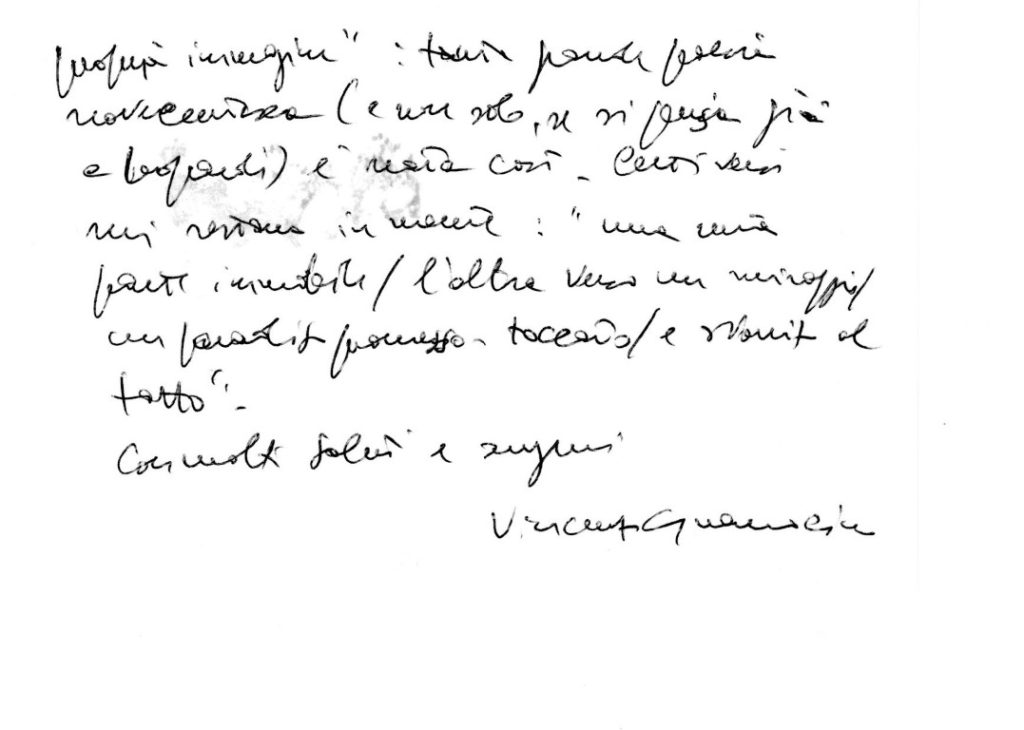 propria immagine": tanta grande poesia
novecentesca (e non solo, se si pensa già
a Leopardi) è nata così. Certi versi
mi restano in mente: "una metà
parte immobile/l'altra verso un miraggio/
un paradiso promesso - toccarlo/e svanit al
tatto".
Con molti saluti e auguri
Vincenzo Guarracino